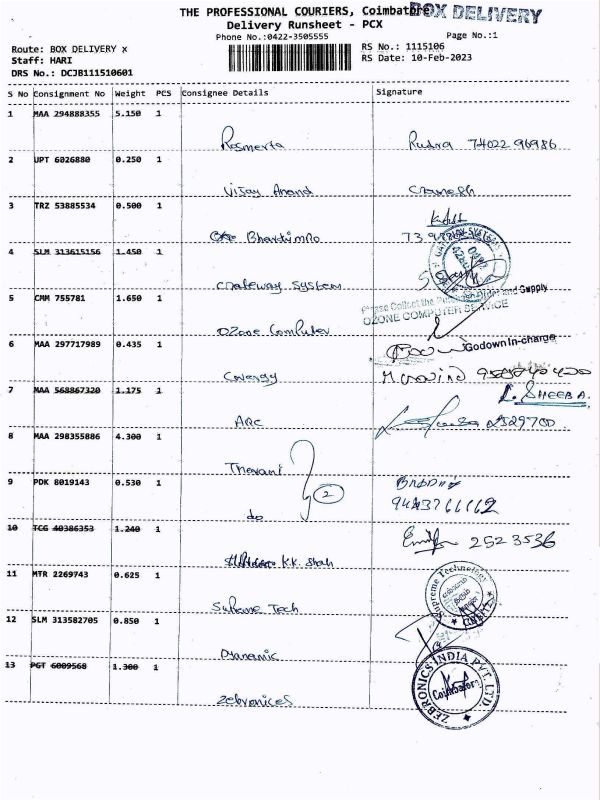 THE PROFESSIONAL COURIERS, Coimbatore
BOX DELIVERY
Delivery Runsheet - PCX
Phone No.:0422-3505555
Page No.:1
Route: BOX DELIVERY x
Staff: HARI
DRS No.: DCJB111510601
RS No.: 1115106
RS Date: 10-Feb-2023
S No Consignment No Weight PCS Consignee Details Signature
1 MAA 294888355 5.150 1
Rosmerta Rudra 74022 96986
2 UPT 6026880 0.250 1
Vijay Anand
3 TRZ 53885534 0.500 1
4 SLM 313615156 1.450 1
Gateway System
5 CMM 755781 1.650 1
Please Collect the and Supply
OZONE COMPUTER SERVICE
Ozone Computer
6 MAA 297717989 0.435 1
Godown In-charge
7 MAA 568867320 1.175 1
L. SHEEBA.
ARC 2529700
8 MAA 298355886 4.300 1
9 PDK 8019143 0.530 1
2
do
10 TCG 40386353 1.240 1
2523536
K.K. Shah
11 MTR 2269743 0.625 1
Supreme Technology
Supreme Tech
12 SLM 313582705 0.850 1
Dynamic
13 PGT 6009568 1.300 1
ZEBRONICS INDIA PVT. LTD
Coimbatore
Zebronices